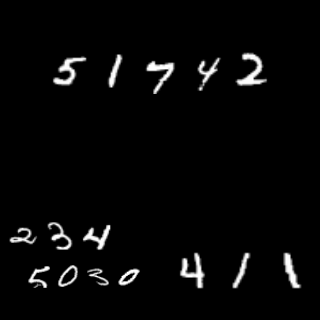 51742
234
5030
411